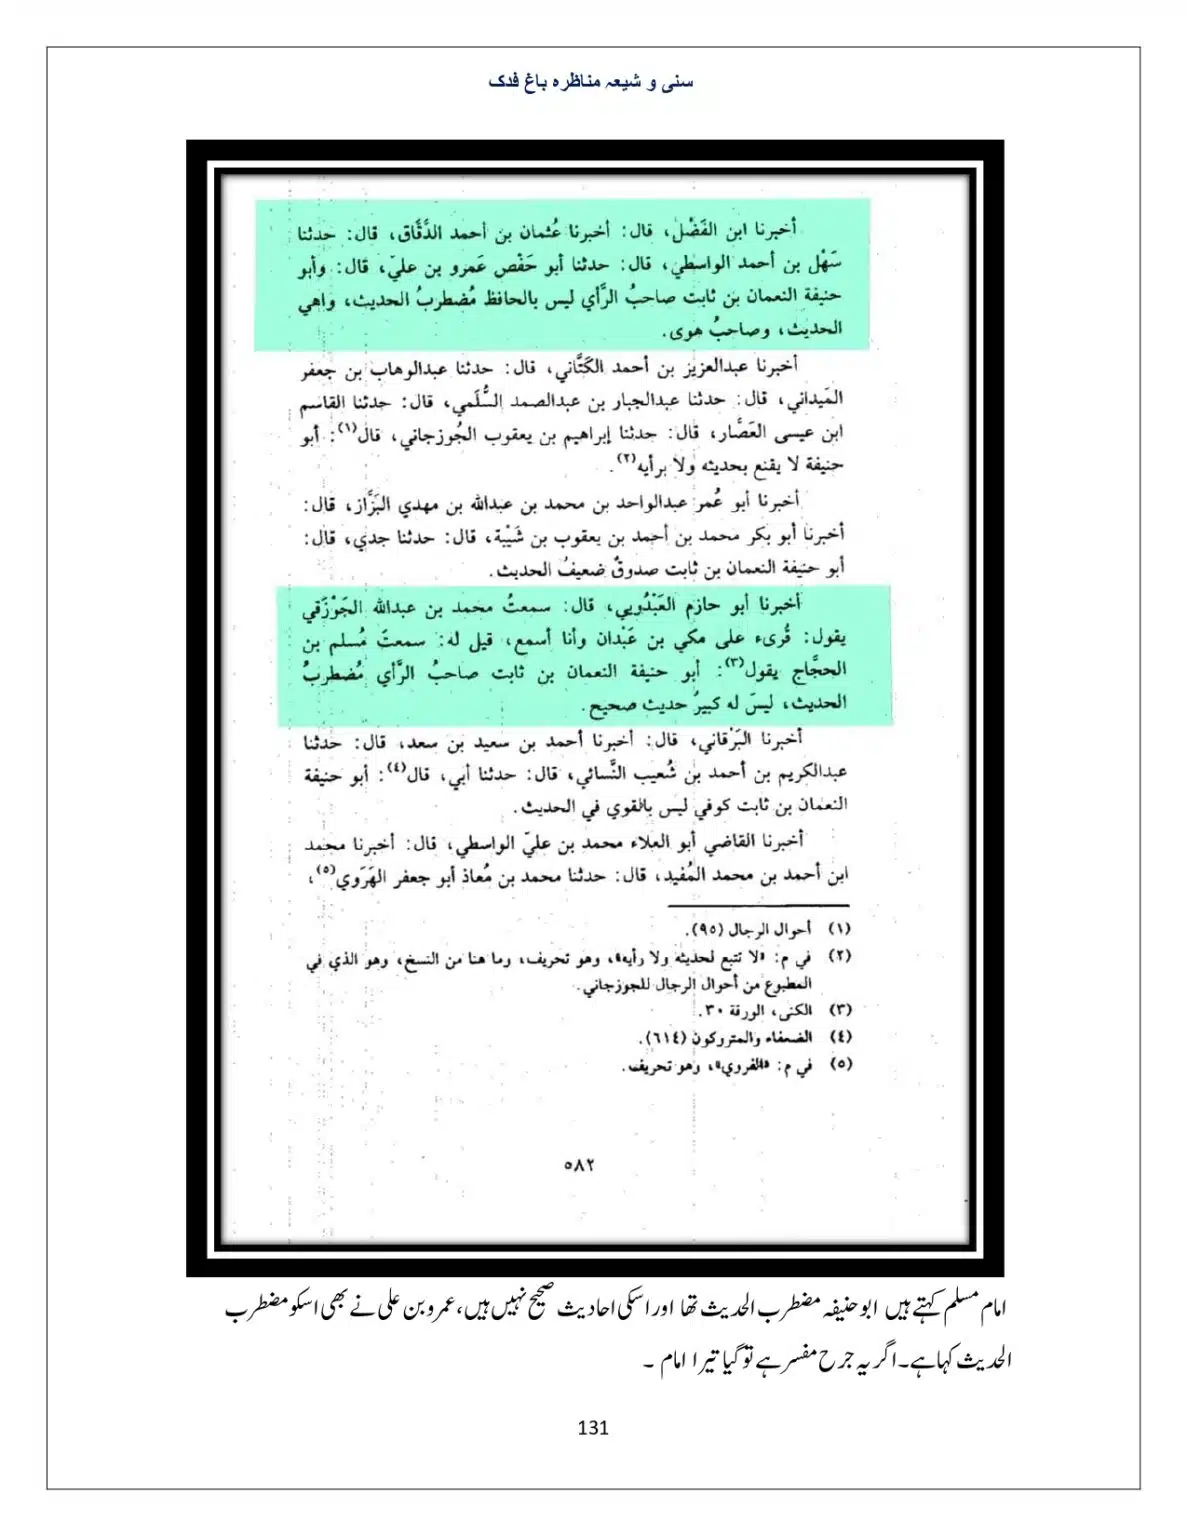 سنی و شیعہ مناظرہ باغ فدک
أخبرنا ابن الفَضْل، قال: أخبرنا عُثمان بن أحمد الدَّقَّاق، قال: حدثنا
سَهْل بن أحمد الواسطي، قال: حدثنا أبو حَفْص عَمرو بن عليّ، قال: وأبو
حنيفة النعمان بن ثابت صاحبُ الرَّأي ليس بالحافظ مُضطربُ الحديث، واهي
الحديث، وصاحبُ هوى.
أخبرنا عبدالعزيز بن أحمد الكَتَّاني، قال: حدثنا عبدالوهاب بن جعفر
المَيداني، قال: حدثنا عبدالجبار بن عبدالصمد السُّلَمي، قال: حدثنا القاسم
ابن عيسى العَصَّار، قال: حدثنا إبراهيم بن يعقوب الجُوزجاني، قال(١): أبو
حنيفة لا يقنع بحديثه ولا برأيه(٢).
أخبرنا أبو عُمر عبدالواحد بن محمد بن عبدالله بن مهدي البَزَّاز، قال:
أخبرنا أبو بكر محمد بن أحمد بن يعقوب بن شَيْبة، قال: حدثنا جدي، قال:
أبو حنيفة النعمان بن ثابت صدوقٌ ضعيفُ الحديث.
أخبرنا أبو حازم العَبْدُويي، قال: سمعتُ محمد بن عبدالله الجَوْزَقي
يقول: قُرىء على مكي بن عَبْدان وأنا أسمع، قيل له: سمعتَ مُسلم بن
الحجَّاج يقول(٣): أبو حنيفة النعمان بن ثابت صاحبُ الرَّأي مُضطربُ
الحديث، ليسَ له كبيرُ حديث صحيح.
أخبرنا البَرْقاني، قال: أخبرنا أحمد بن سعيد بن سعد، قال: حدثنا
عبدالكريم بن أحمد بن شُعيب النَّسائي، قال: حدثنا أبي، قال(٤): أبو حنيفة
النعمان بن ثابت كوفي ليس بالقوي في الحديث.
أخبرنا القاضي أبو العلاء محمد بن عليّ الواسطي، قال: أخبرنا محمد
ابن أحمد بن محمد المُفيد، قال: حدثنا محمد بن مُعاذ أبو جعفر الهَرَوي(٥)،
(١) أحوال الرجال (٩٥).
(٢) في م: «لا تتبع لحديثه ولا رأيه»، وهو تحريف، وما هنا من النسخ، وهو الذي في
المطبوع من أحوال الرجال للجوزجاني.
(٣) الكنى، الورقة ٣٠.
(٤) الضعفاء والمتروكون (٦١٤).
(٥) في م: «الفروي»، وهو تحريف.
٥٨٢
امام مسلم کہتے ہیں ابو حنیفہ مضطرب الحدیث تھا اور اسکی احادیث صحیح نہیں ہیں، عمرو بن علی نے بھی اسکو مضطرب
الحدیث کہا ہے۔ اگر یہ جرح مفسر ہے تو گیا تیرا امام ۔
131